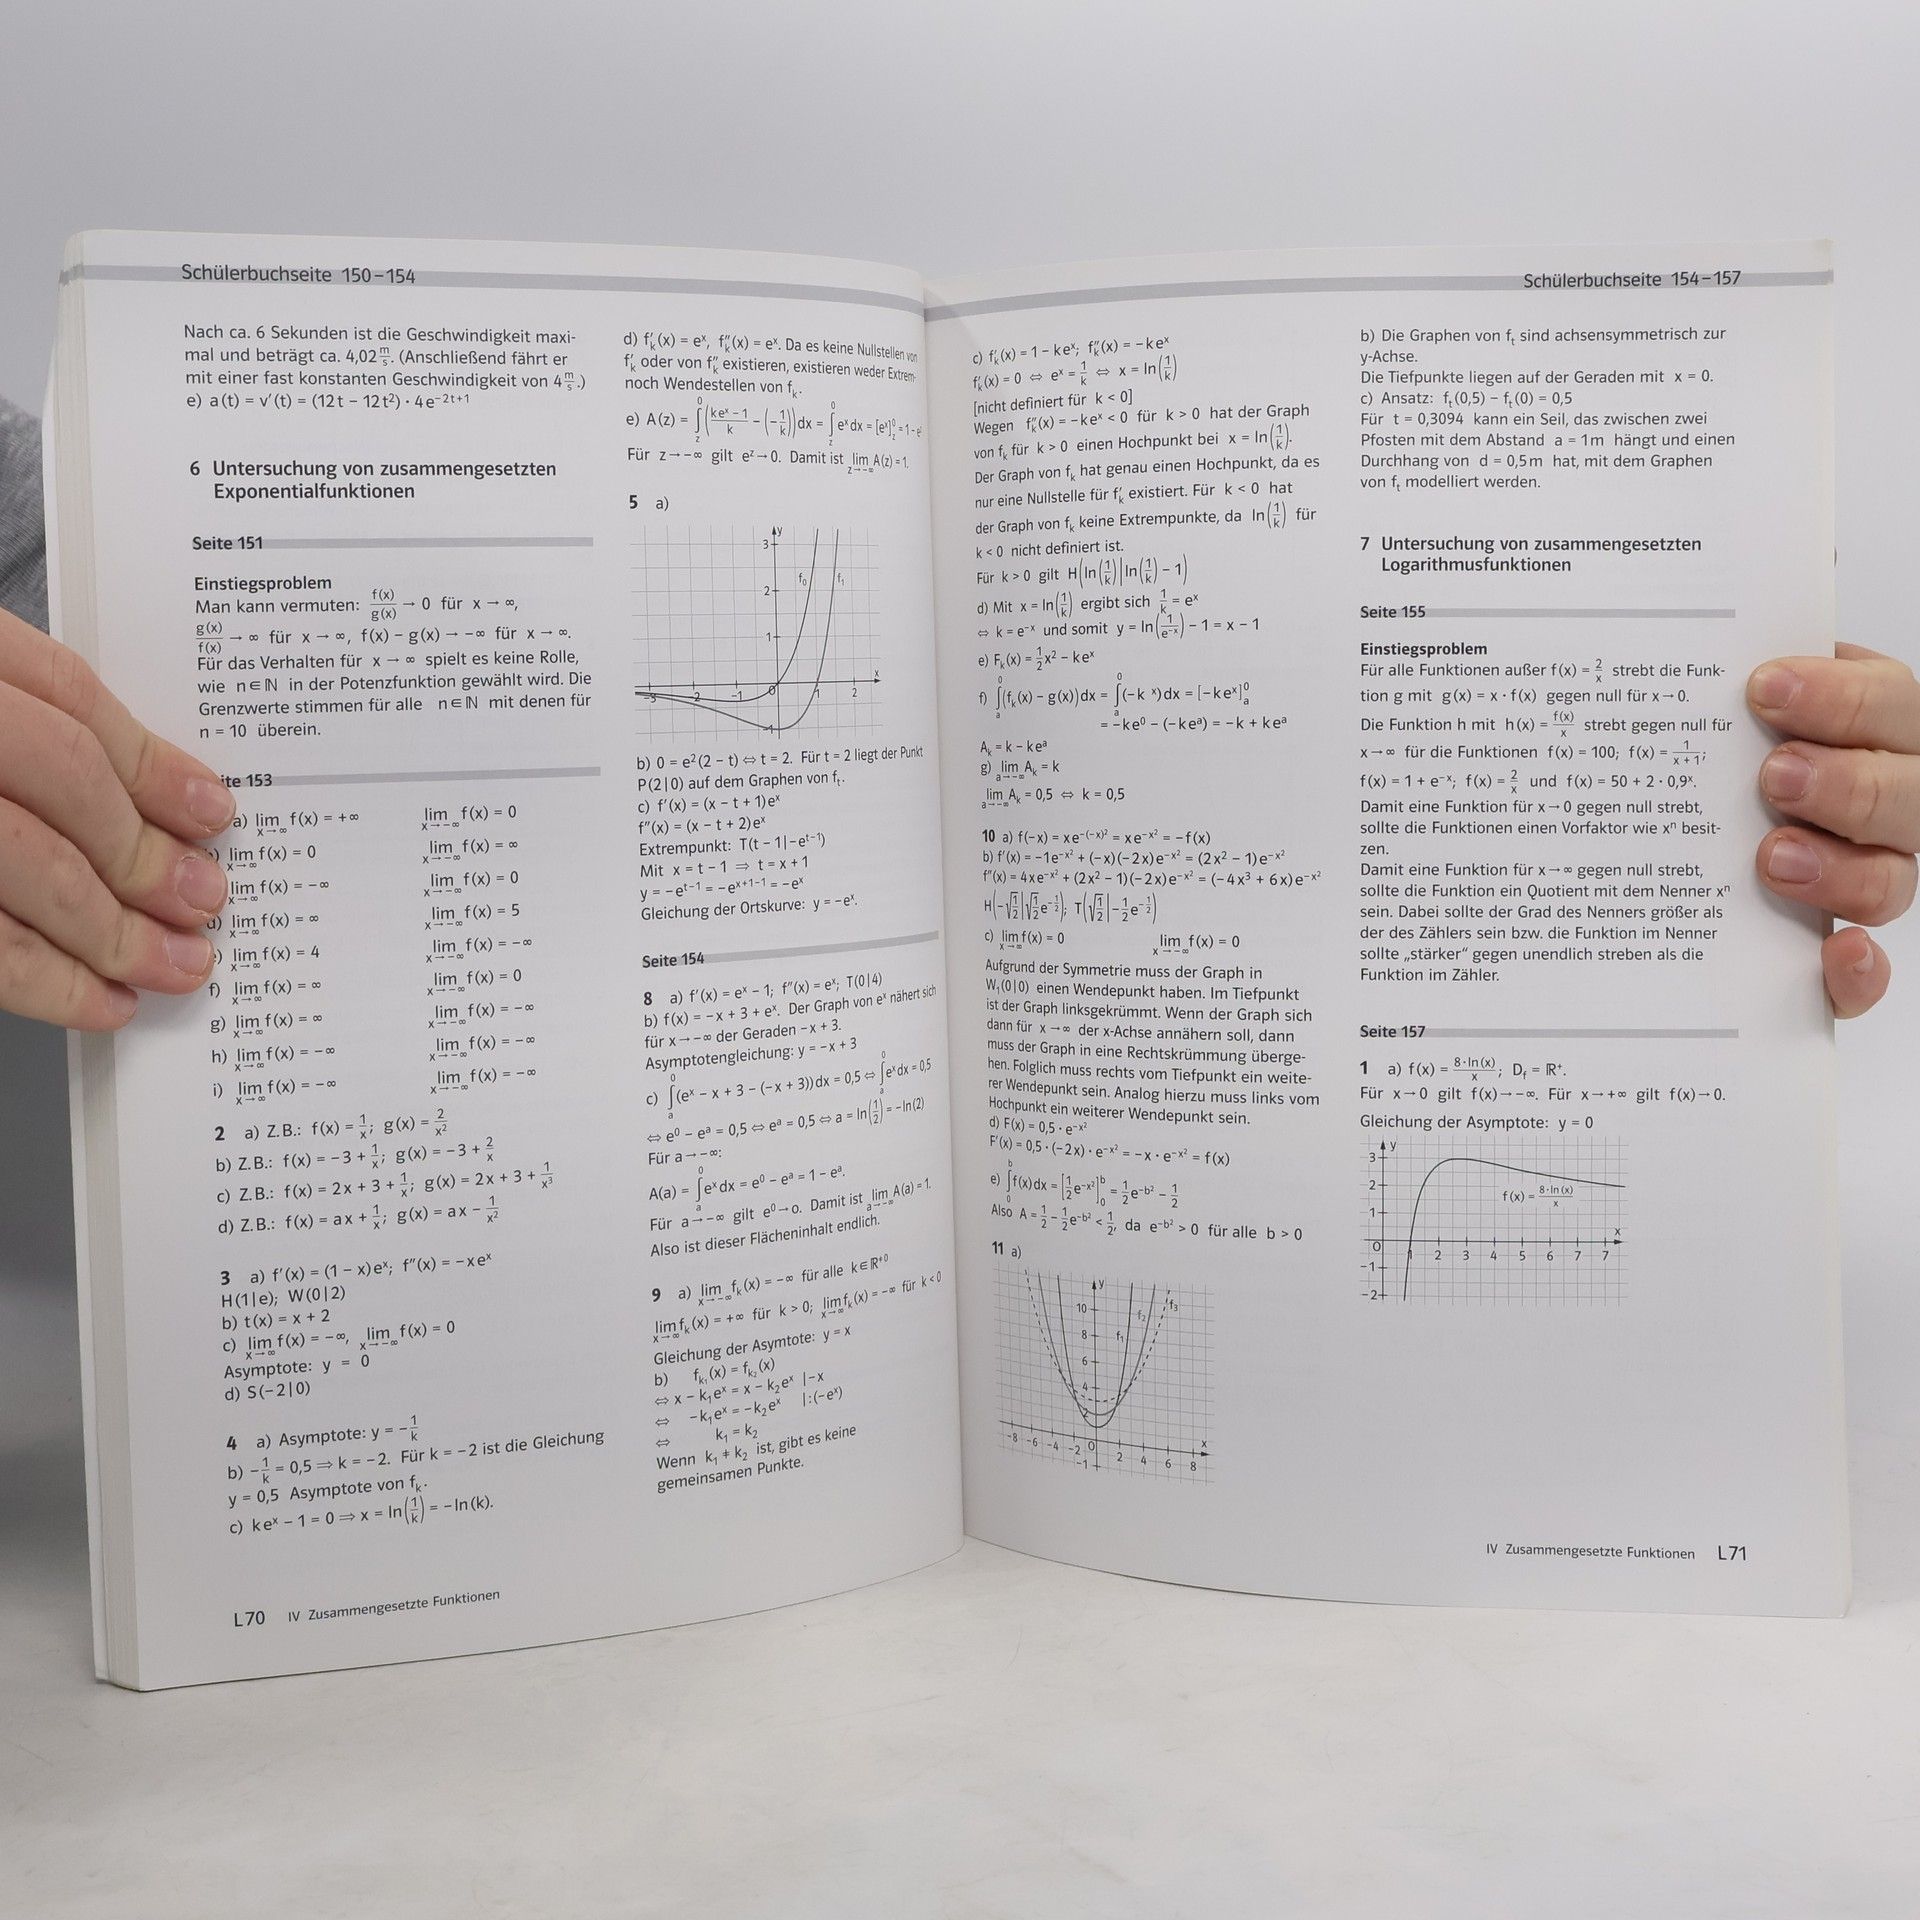 Schülerbuchseite 150–154
Nach ca. 6 Sekunden ist die Geschwindigkeit maxi-
mal und beträgt ca. 4,02 m/s. (Anschließend fährt er
mit einer fast konstanten Geschwindigkeit von 4 m/s.)
e) a(t) = v′(t) = (12t − 12t²) · 4e^(−2t+1)
6 Untersuchung von zusammengesetzten
Exponentialfunktionen
Seite 151
Einstiegsproblem
Man kann vermuten: f(x)/g(x) → 0 für x → ∞,
g(x)/f(x) → ∞ für x → ∞, f(x) − g(x) → −∞ für x → ∞.
Für das Verhalten für x → ∞ spielt es keine Rolle,
wie n∈ℕ in der Potenzfunktion gewählt wird. Die
Grenzwerte stimmen für alle n∈ℕ mit denen für
n = 10 überein.
ite 153
a) lim x→∞ f(x) = +∞ lim x→−∞ f(x) = 0
) lim x→∞ f(x) = 0 lim x→−∞ f(x) = ∞
lim x→∞ f(x) = −∞ lim x→−∞ f(x) = 0
d) lim x→∞ f(x) = ∞ lim x→−∞ f(x) = 5
) lim x→∞ f(x) = 4 lim x→−∞ f(x) = −∞
f) lim x→∞ f(x) = ∞ lim x→−∞ f(x) = 0
g) lim x→∞ f(x) = ∞ lim x→−∞ f(x) = −∞
h) lim x→∞ f(x) = −∞ lim x→−∞ f(x) = −∞
i) lim x→∞ f(x) = −∞ lim x→−∞ f(x) = −∞
2 a) Z.B.: f(x) = 1/x; g(x) = 2/x²
b) Z.B.: f(x) = −3 + 1/x; g(x) = −3 + 2/x
c) Z.B.: f(x) = 2x + 3 + 1/x; g(x) = 2x + 3 + 1/x³
d) Z.B.: f(x) = ax + 1/x; g(x) = ax − 1/x²
3 a) f′(x) = (1 − x)eˣ; f″(x) = −xeˣ
H(1|e); W(0|2)
b) t(x) = x + 2
c) lim x→∞ f(x) = −∞, lim x→−∞ f(x) = 0
Asymptote: y = 0
d) S(−2|0)
4 a) Asymptote: y = −1/k
b) −1/k = 0,5 ⇒ k = −2. Für k = −2 ist die Gleichung
y = 0,5 Asymptote von fₖ.
c) keˣ − 1 = 0 ⇒ x = ln(1/k) = −ln(k).
L70 IV Zusammengesetzte Funktionen
d) fₖ′(x) = eˣ, fₖ″(x) = eˣ. Da es keine Nullstellen von
fₖ′ oder von fₖ″ existieren, existieren weder Extrem-
noch Wendestellen von fₖ.
e) A(z) = ∫_z^0 ((keˣ − 1)/k − (−1/k))dx = ∫_z^0 eˣdx = [eˣ]_z^0 = 1 −
Für z → −∞ gilt e^z → 0. Damit ist lim z→−∞ A(z) = 1.
5 a)
y
3
2
1
f₀ f₁
x
−3 −2 −1 0 1 2
−1
b) 0 = e²(2 − t) ⇔ t = 2. Für t = 2 liegt der Punkt
P(2|0) auf dem Graphen von fₜ.
c) f′(x) = (x − t + 1)eˣ
f″(x) = (x − t + 2)eˣ
Extrempunkt: T(t − 1|−e^(t−1))
Mit x = t − 1 ⇒ t = x + 1
y = −e^(t−1) = −e^(x+1−1) = −eˣ
Gleichung der Ortskurve: y = −eˣ.
Seite 154
8 a) f′(x) = eˣ − 1; f″(x) = eˣ; T(0|4)
b) f(x) = −x + 3 + eˣ. Der Graph von eˣ nähert sich
für x → −∞ der Geraden −x + 3.
Asymptotengleichung: y = −x + 3
c) ∫_a^0 (eˣ − x + 3 − (−x + 3))dx = 0,5 ⇔ ∫_a^0 eˣdx = 0,5
⇔ e⁰ − eᵃ = 0,5 ⇔ eᵃ = 0,5 ⇔ a = ln(1/2) = −ln(2)
Für a → −∞:
A(a) = ∫_a^0 eˣdx = e⁰ − eᵃ = 1 − eᵃ.
Für a → −∞ gilt e⁰ → o. Damit ist lim a→−∞ A(a) = 1.
Also ist dieser Flächeninhalt endlich.
9 a) lim x→−∞ fₖ(x) = −∞ für alle k∈ℝ^(≠0)
lim x→∞ fₖ(x) = +∞ für k > 0; lim x→∞ fₖ(x) = −∞ für k < 0
Gleichung der Asymtote: y = x
b) f_k₁(x) = f_k₂(x)
⇔ x − k₁eˣ = x − k₂eˣ |−x
⇔ −k₁eˣ = −k₂eˣ |:(−eˣ)
⇔ k₁ = k₂
Wenn k₁ ≠ k₂ ist, gibt es keine
gemeinsamen Punkte.
Schülerbuchseite 154–157
c) fₖ′(x) = 1 − keˣ; fₖ″(x) = −keˣ
fₖ′(x) = 0 ⇔ eˣ = 1/k ⇔ x = ln(1/k)
[nicht definiert für k < 0]
Wegen fₖ″(x) = −keˣ < 0 für k > 0 hat der Graph
von fₖ für k > 0 einen Hochpunkt bei x = ln(1/k).
Der Graph von fₖ hat genau einen Hochpunkt, da es
nur eine Nullstelle für fₖ′ existiert. Für k < 0 hat
der Graph von fₖ keine Extrempunkte, da ln(1/k) für
k < 0 nicht definiert ist.
Für k > 0 gilt H(ln(1/k)|ln(1/k) − 1)
d) Mit x = ln(1/k) ergibt sich 1/k = eˣ
⇔ k = e^(−x) und somit y = ln(1/e^(−x)) − 1 = x − 1
e) Fₖ(x) = 1/2 x² − keˣ
f) ∫_a^0 (fₖ(x) − g(x))dx = ∫_a^0 (−k ˣ)dx = [−keˣ]_a^0
= −ke⁰ − (−keᵃ) = −k + keᵃ
Aₖ = k − keᵃ
g) lim a→−∞ Aₖ = k
lim a→−∞ Aₖ = 0,5 ⇔ k = 0,5
10 a) f(−x) = xe^(−(−x)²) = xe^(−x²) = −f(x)
b) f′(x) = −1e^(−x²) + (−x)(−2x)e^(−x²) = (2x² − 1)e^(−x²)
f″(x) = 4xe^(−x²) + (2x² − 1)(−2x)e^(−x²) = (−4x³ + 6x)e^(−x²)
H(−√(1/2)|√(1/2)e^(−1/2)); T(√(1/2)|−1/2 e^(−1/2))
c) lim x→∞ f(x) = 0 lim x→−∞ f(x) = 0
Aufgrund der Symmetrie muss der Graph in
W₁(0|0) einen Wendepunkt haben. Im Tiefpunkt
ist der Graph linksgekrümmt. Wenn der Graph sich
dann für x → ∞ der x-Achse annähern soll, dann
muss der Graph in eine Rechtskrümmung überge-
hen. Folglich muss rechts vom Tiefpunkt ein weite-
rer Wendepunkt sein. Analog hierzu muss links vom
Hochpunkt ein weiterer Wendepunkt sein.
d) F(x) = 0,5 · e^(−x²)
F′(x) = 0,5 · (−2x) · e^(−x²) = −x · e^(−x²) = f(x)
e) ∫_0^b f(x)dx = [1/2 e^(−x²)]_0^b = 1/2 e^(−b²) − 1/2
Also A = 1/2 − 1/2 e^(−b²) < 1/2, da e^(−b²) > 0 für alle b > 0
11 a)
y
10
8
6
4
2
f₁ f₂ f₃
x
−8 −6 −4 −2 0 2 4 6 8
−1
b) Die Graphen von fₜ sind achsensymmetrisch zur
y-Achse.
Die Tiefpunkte liegen auf der Geraden mit x = 0.
c) Ansatz: fₜ(0,5) − fₜ(0) = 0,5
Für t = 0,3094 kann ein Seil, das zwischen zwei
Pfosten mit dem Abstand a = 1m hängt und einen
Durchhang von d = 0,5m hat, mit dem Graphen
von fₜ modelliert werden.
7 Untersuchung von zusammengesetzten
Logarithmusfunktionen
Seite 155
Einstiegsproblem
Für alle Funktionen außer f(x) = 2/x strebt die Funk-
tion g mit g(x) = x · f(x) gegen null für x → 0.
Die Funktion h mit h(x) = f(x)/x strebt gegen null für
x → ∞ für die Funktionen f(x) = 100; f(x) = 1/(x + 1);
f(x) = 1 + e^(−x); f(x) = 2/x und f(x) = 50 + 2 · 0,9ˣ.
Damit eine Funktion für x → 0 gegen null strebt,
sollte die Funktionen einen Vorfaktor wie xⁿ besit-
zen.
Damit eine Funktion für x → ∞ gegen null strebt,
sollte die Funktion ein Quotient mit dem Nenner xⁿ
sein. Dabei sollte der Grad des Nenners größer als
der des Zählers sein bzw. die Funktion im Nenner
sollte „stärker“ gegen unendlich streben als die
Funktion im Zähler.
Seite 157
1 a) f(x) = 8·ln(x)/x; D_f = ℝ⁺.
Für x → 0 gilt f(x) → −∞. Für x → +∞ gilt f(x) → 0.
Gleichung der Asymptote: y = 0
y
3
2
1
f(x) = 8·ln(x)/x
x
0 1 2 3 4 5 6 7 7
−1
−2
IV Zusammengesetzte Funktionen L71